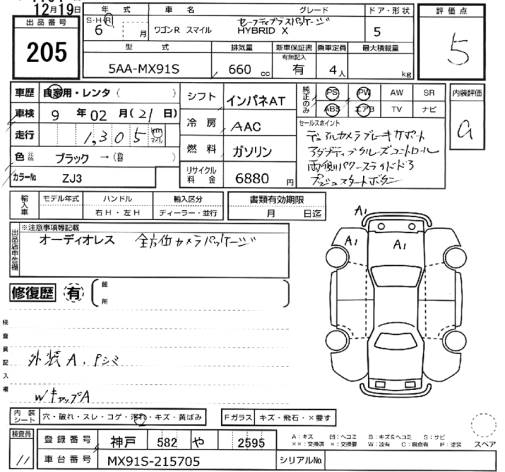 12月19日
年式 車名 グレード ドア・形状 評価点
出品番号
205
S・H・R 6 月 ワゴンR スマイル セーフティプラスパッケージ HYBRID X 5
5
型式 排気量 新車保証書 有無記入 乗車定員 最大積載量
5AA-MX91S 660 cc 有 4人 kg
車歴 自家用・レンタ( )
車検 9年 02月(21日)
走行 1,305 km
色 ブラック →( )
カラーNo ZJ3
シフト インパネAT
冷房 AAC
燃料 ガソリン
リサイクル料金 6880円
純正のみ PS PW AW SR
ABS エアB TV ナビ
セールスポイント
デュアルカメラブレーキサポート
アダプティブクルーズコントロール
両側パワースライドドア
プッシュスタートボタン
内装評価
a
輸入車 モデル年式 ハンドル 輸入区分
右H・左H ディーラー・並行
書類有効期限
月 日迄
※注意事項等記載
オーディオレス 全方位カメラパッケージ
修復歴 有 箇所
検査員記入欄
外装A,Pシミ
WキャップA
A1 A1
内装シート 穴・破れ・スレ・コゲ・汚れ・キズ・黄ばみ
Fガラス キズ・飛石・×要す
検査員 11
登録番号 神戸 582 や 2595
車台番号 MX91S-215705 シリアルNo
スペア